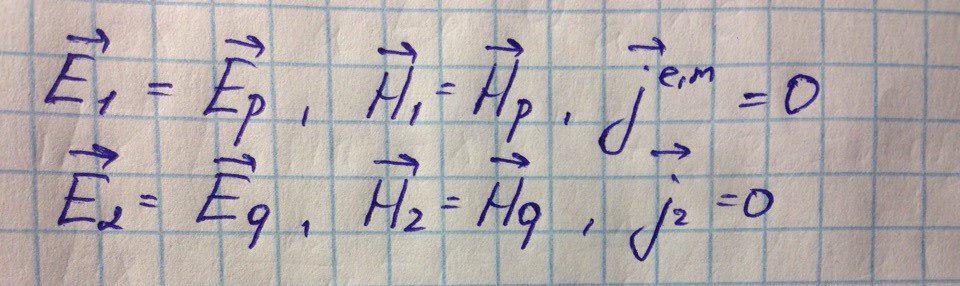 $\vec{E}_1 = \vec{E}_p, \vec{H}_1 = \vec{H}_p, \vec{j}^{e,m} = 0$
$\vec{E}_2 = \vec{E}_q, \vec{H}_2 = \vec{H}_q, \vec{j}_2 = 0$